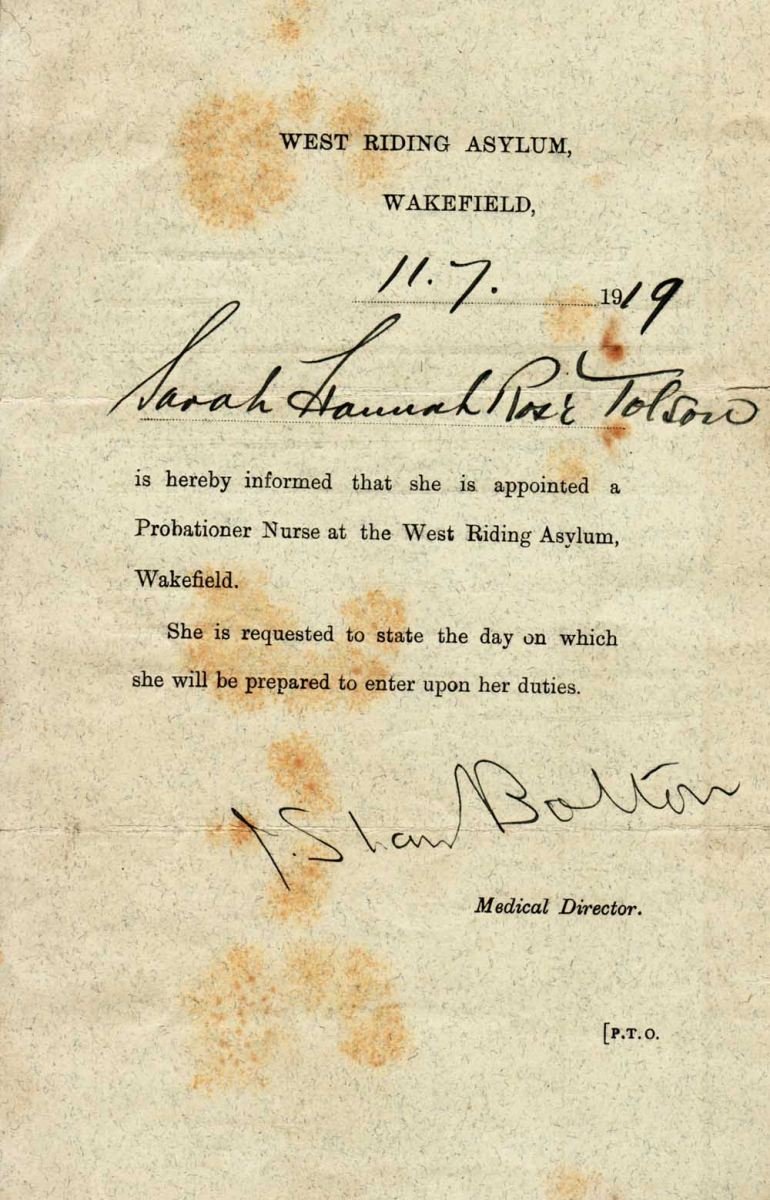 WEST RIDING ASYLUM,
WAKEFIELD,
11.7. 1919
Sarah Hannah Rose Tolson
is hereby informed that she is appointed a
Probationer Nurse at the West Riding Asylum,
Wakefield.
She is requested to state the day on which
she will be prepared to enter upon her duties.
J. Shaw Bolton
Medical Director.
[P.T.O.